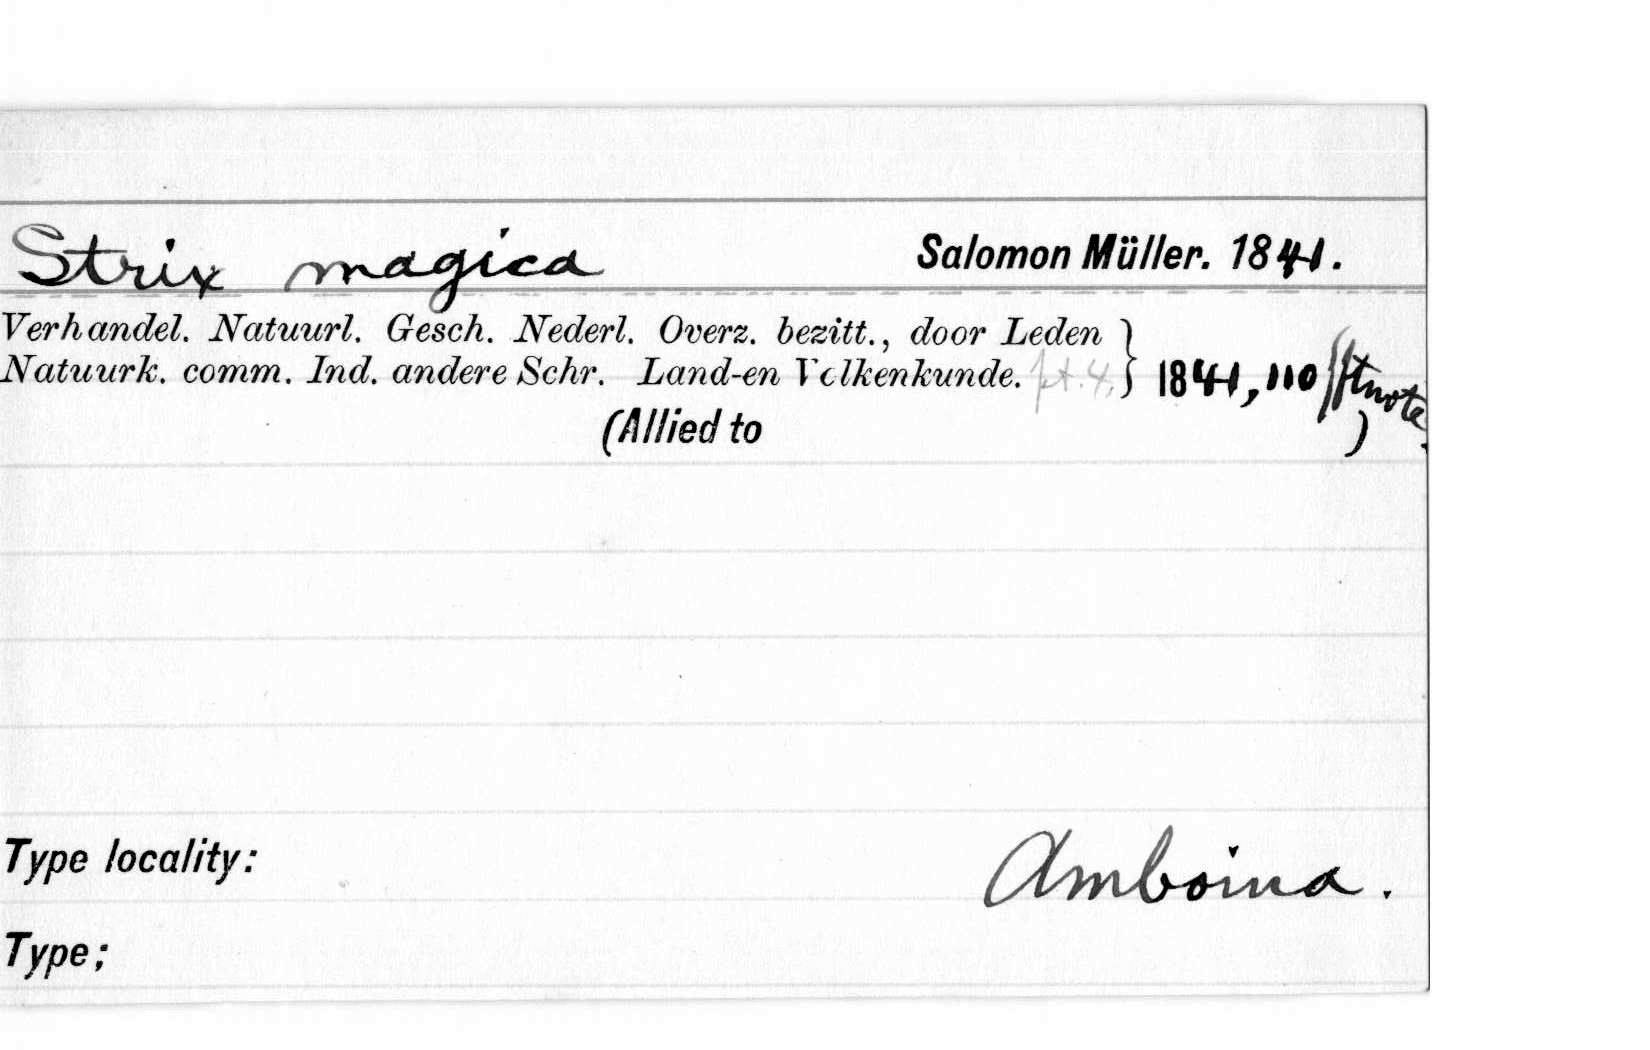 Strix magica Salomon Müller. 1841.
Verhandel. Natuurl. Gesch. Nederl. Overz. bezitt., door Leden
Natuurk. comm. Ind. andere Schr. Land-en Volkenkunde. pt. 4. } 1841, 110 ftnote.
(Allied to )
Type locality: Amboina.
Type;